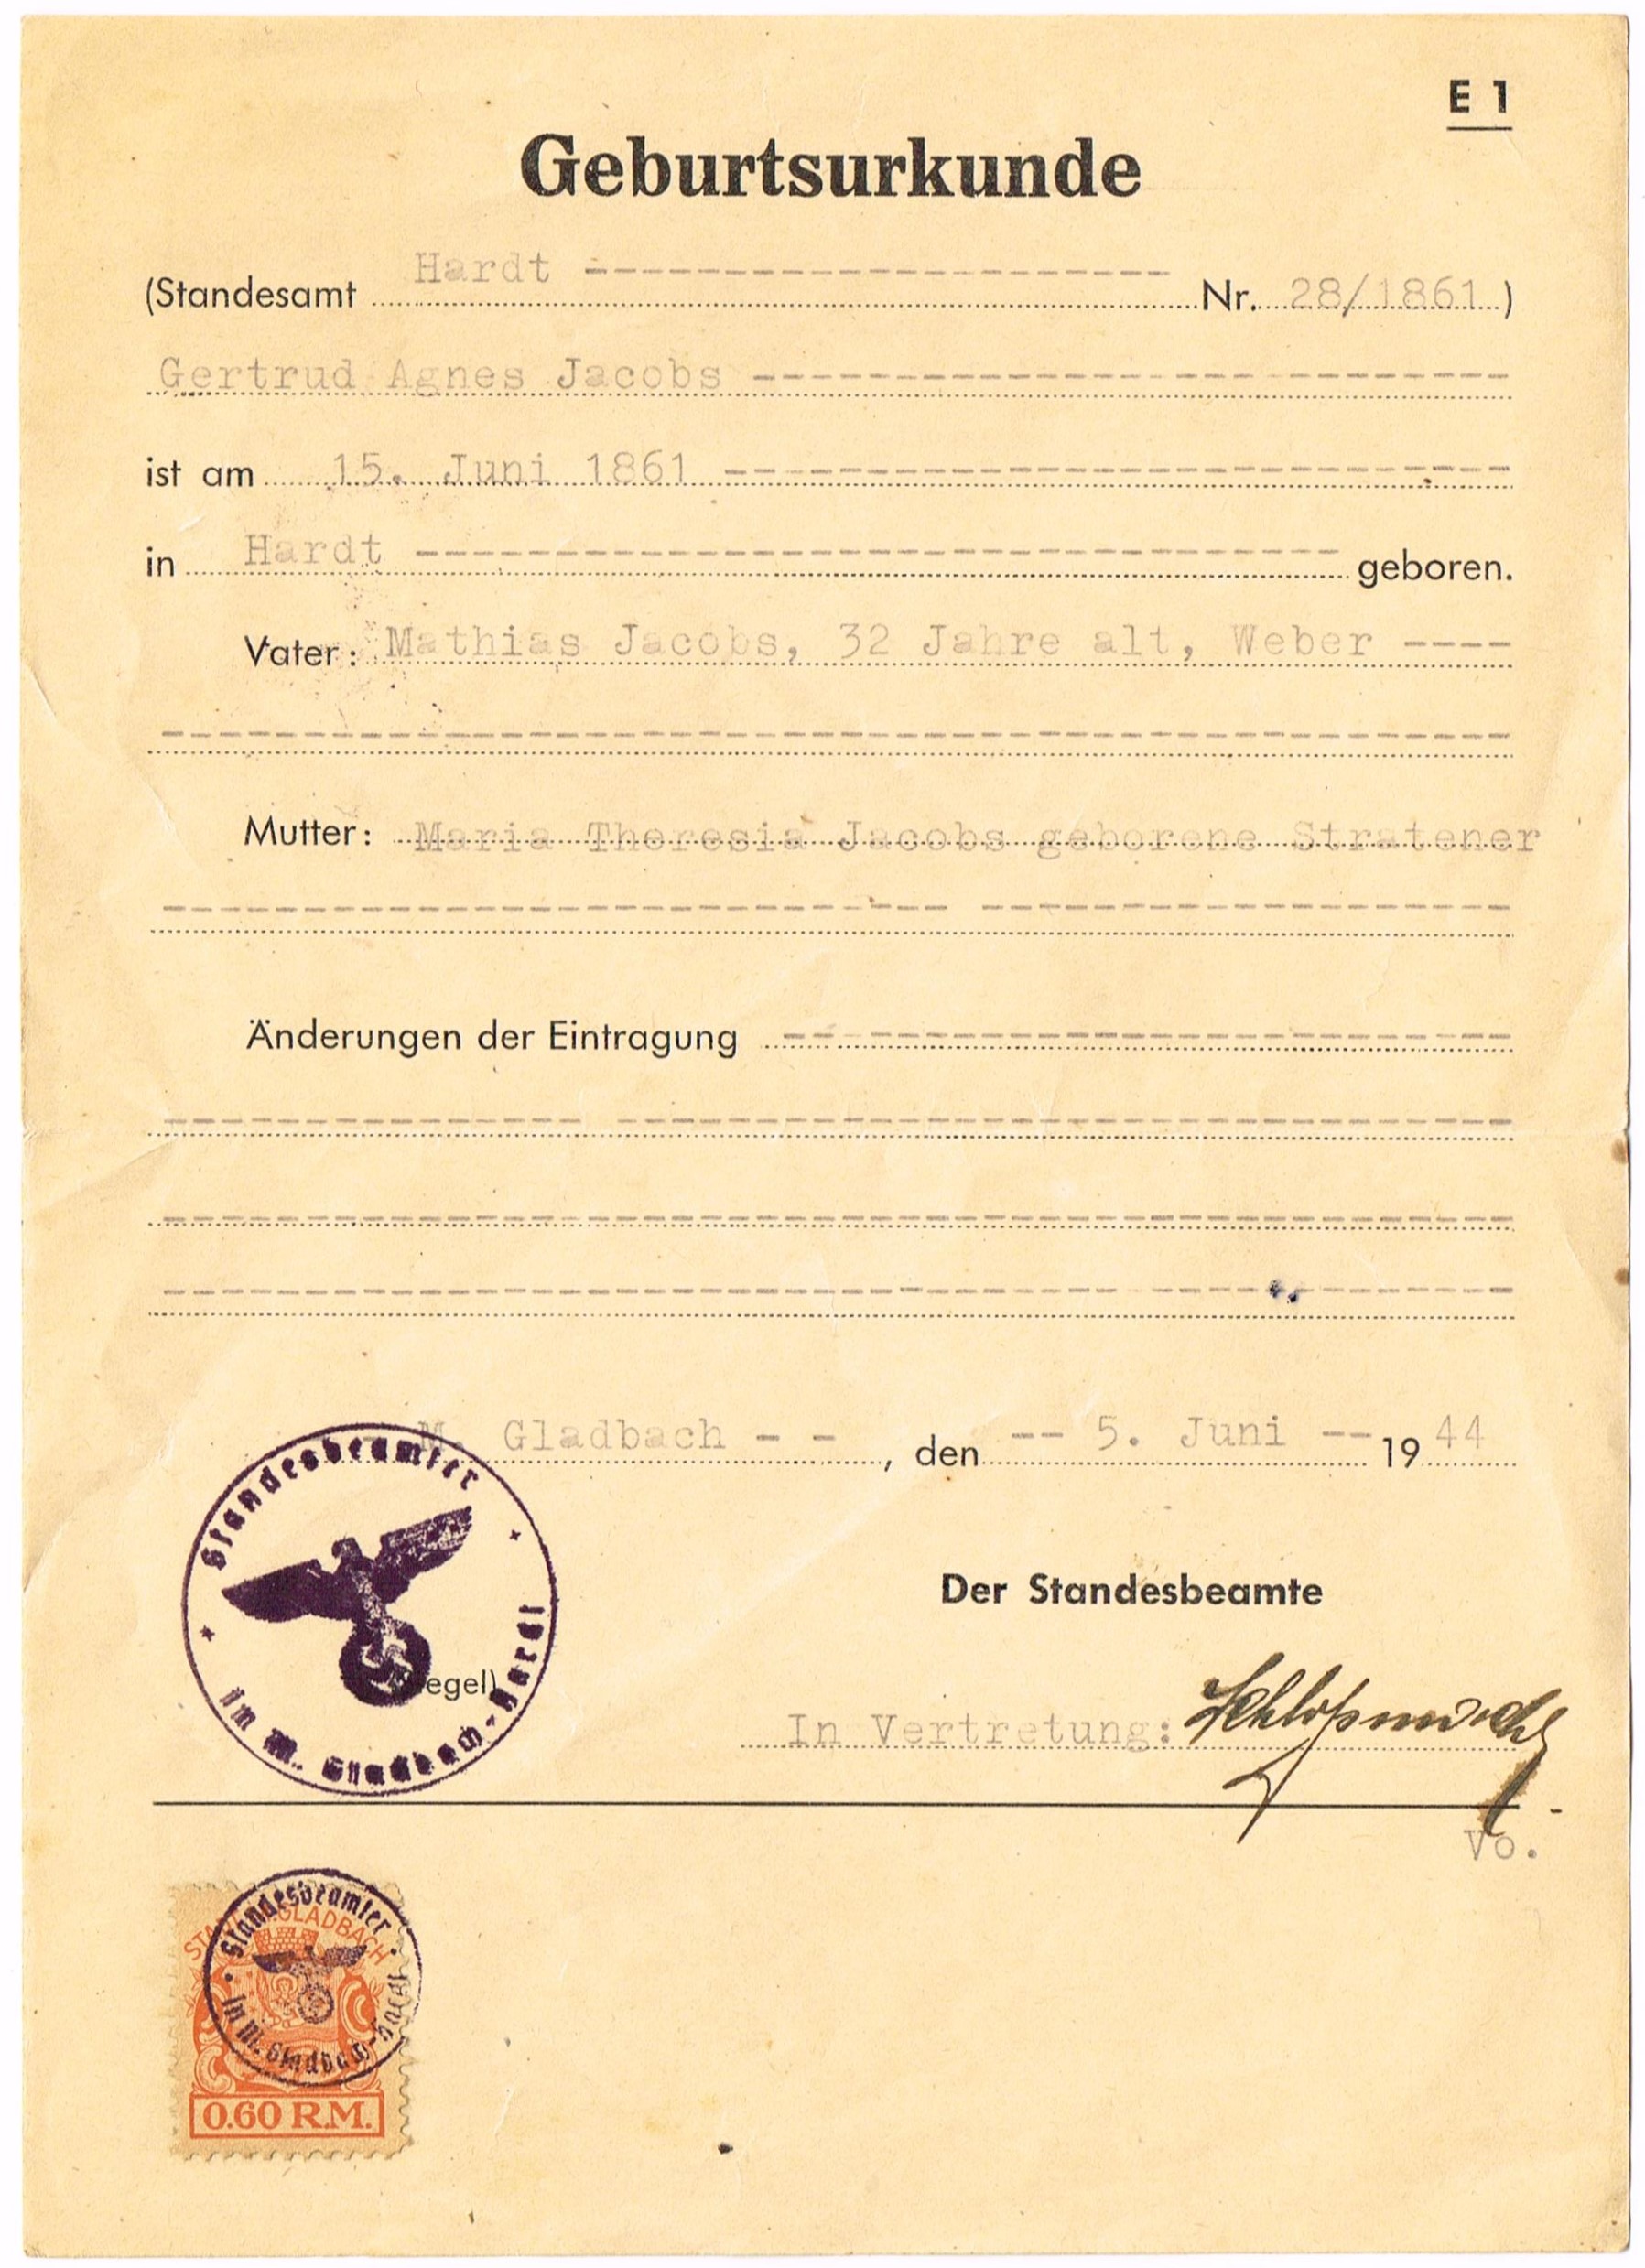 E 1
Geburtsurkunde
(Standesamt Hardt Nr. 28/1861)
Gertrud Agnes Jacobs
ist am 15. Juni 1861
in Hardt geboren.
Vater: Mathias Jacobs, 32 Jahre alt, Weber
Mutter: Maria Theresia Jacobs geborene Stratener
Änderungen der Eintragung
M. Gladbach, den 5. Juni 1944
Standesbeamter
in M. Gladbach-Hardt
egel)
Der Standesbeamte
In Vertretung:
Vo.
GLADBACH
Standesbeamter
in M. Gladbach-Hardt
0.60 R.M.